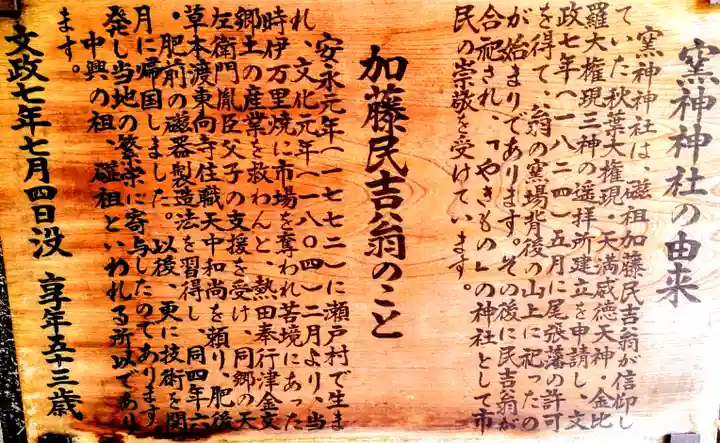 窯神神社の由来
窯神神社は、磁祖加藤民吉翁が信仰し
ていた秋葉大権現・天満威徳天神・金比
羅大権現三神の遥拝所建立を申請し、文
政七年(一八二四)五月に尾張藩の許可
を得て、翁の窯場背後の山上に祀ったの
が始まりであります。その後に民吉翁が
合祀され、「やきもの」の神社として市
民の崇敬を受けています。
加藤民吉翁のこと
安永元年(一七七二)に瀬戸村で生ま
れ、文化元年(一八〇四)二月より、当
時伊万里焼に市場を奪われ苦境にあった
郷土の産業を救わんと、熱田奉行津金文
左衛門胤臣父子の支援を受け、同郷の天
草本渡東向寺住職天中和尚を頼り、肥後
・肥前の磁器製造法を習得し、同四年六
月に帰国しました。以後、更に技術を開
発し当地の繁栄に寄与したのであります
。中興の祖、磁祖といわれる所以であり
ます。
文政七年七月四日没 享年五十三歳